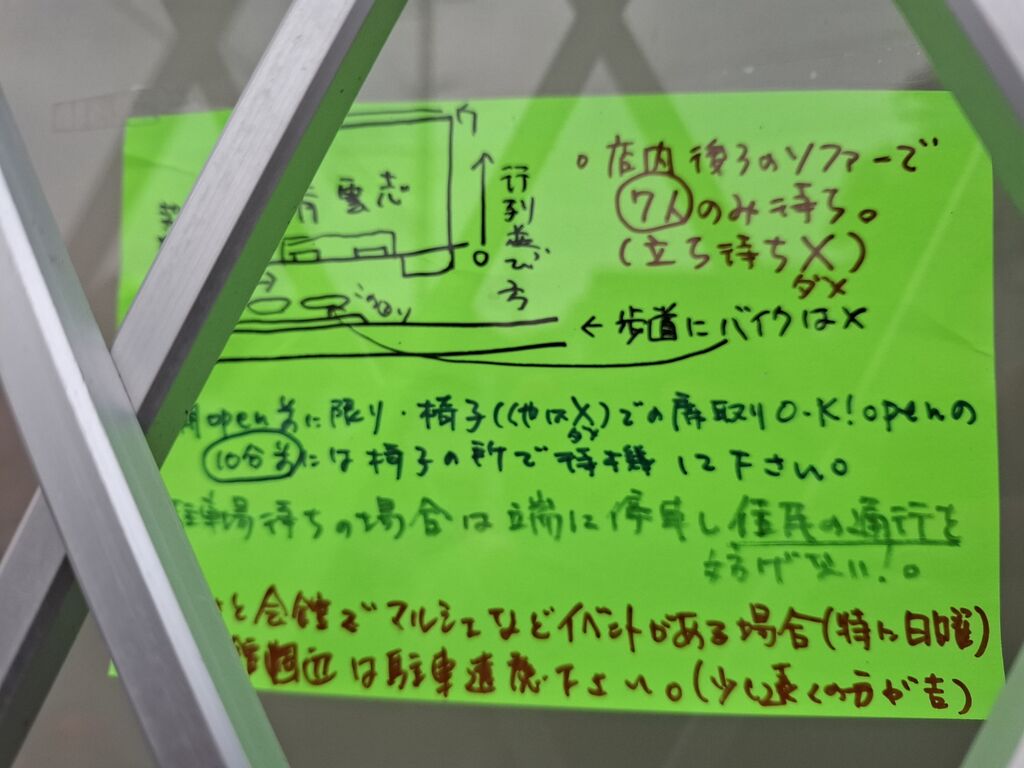 雲志
行列並び方
いるか
。店内後ろのソファーで
7人のみ待ち。
(立ち待ちX)
ダメ
← 歩道にバイクはX
open前に限り・椅子((やはX)での席取りO.K! openの
ダメ
10分前には椅子の所で待機して下さい。
駐車場待ちの場合は立端に停車し住民の通行を
妨げない!。
と会館でマルシェなどイベントがある場合(特に日曜)
館周辺は駐車遠慮下さい。(少し遠くの方が吉)